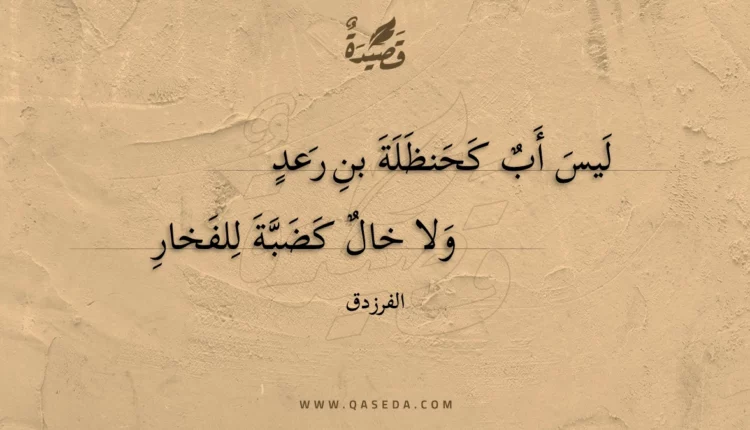 قَصِيدَةٌ
لَيسَ أَبٌ كَحَنظَلَةَ بنِ رَعدٍ
وَلا خالٌ كَضَبَّةَ لِلفَخارِ
الفرزدق
WWW.QASEDA.COM